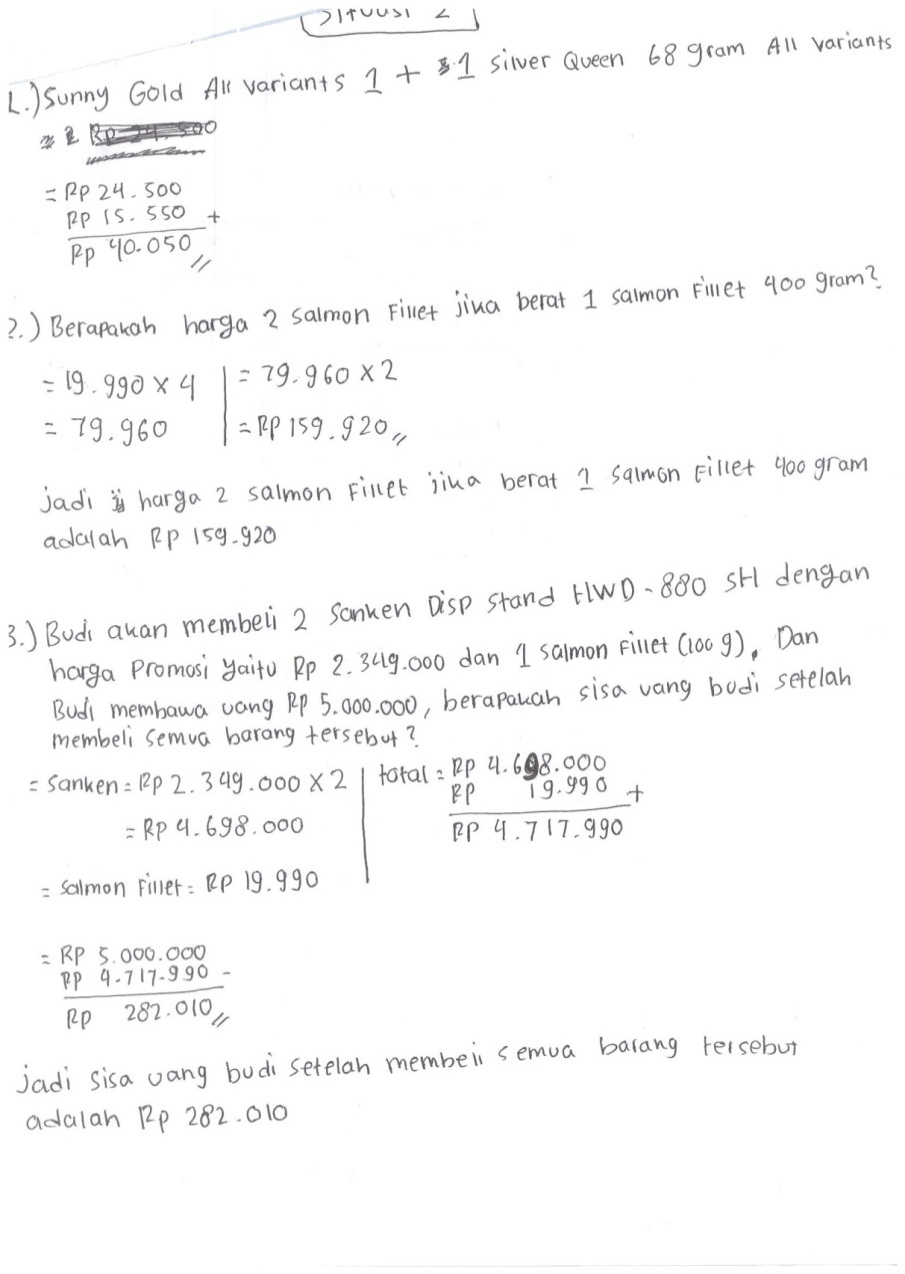 Situasi 2
1.) Sunny Gold All variants 1 + 1 silver Queen 68 gram All variants
= Rp 24.500
Rp 15.550 +
Rp 40.050 //
2.) Berapakah harga 2 salmon Fillet jika berat 1 salmon Fillet 400 gram?
= 19.990 x 4 | = 79.960 x 2
= 79.960 | = Rp 159.920 //
jadi harga 2 salmon Fillet jika berat 1 salmon Fillet 400 gram
adalah Rp 159.920
3.) Budi akan membeli 2 Sanken Disp Stand HWD - 880 SH dengan
harga Promosi yaitu Rp 2.349.000 dan 1 salmon Fillet (100 g), Dan
Budi membawa uang Rp 5.000.000, berapakah sisa uang budi setelah
membeli semua barang tersebut?
= Sanken = Rp 2.349.000 x 2 | total = Rp 4.698.000
Rp 19.990 +
= Rp 4.698.000 Rp 4.717.990
= Salmon Fillet = Rp 19.990
= Rp 5.000.000
Rp 4.717.990 -
Rp 282.010 //
jadi sisa uang budi setelah membeli semua barang tersebut
adalah Rp 282.010